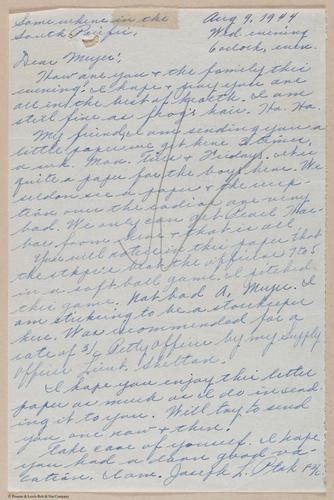 Somewhere in the
South Pacific,
Aug 9, 1944
Wed. evening
6 oclock, even.
Dear Meyer,
How are you & the family this
evening. I hope & pray you are
all in the best of health. I am
still fine as frog's hair. Ha. Ha.
My friend, I am sending you a
little paper we get here 3 times
a wk. Mon. Wed & Fridays. It is
quite a paper for the boys here. We
seldom see a paper & the recep-
tion over the radios are very
bad. We only can get Pearl Har-
bor from here & that is all.
You will notice in this paper that
the stkprs beat the officers 7 to 5
in a softball game. I pitched
this game. Not bad A, Meyer. I
am striking to be a storekeeper
here. Was recommended for a
rate of 3/c Petty Officer by my Supply
Officer Lieut. Shelton.
I hope you enjoy this little
paper as much as I do in send
ing it to you. Will try to send
you one now & then!
Take care of yourself. I hope
you had a good va-
cation. I am. Joseph L. Ptak
© Profiles & Lewis Bolt & Nut Company